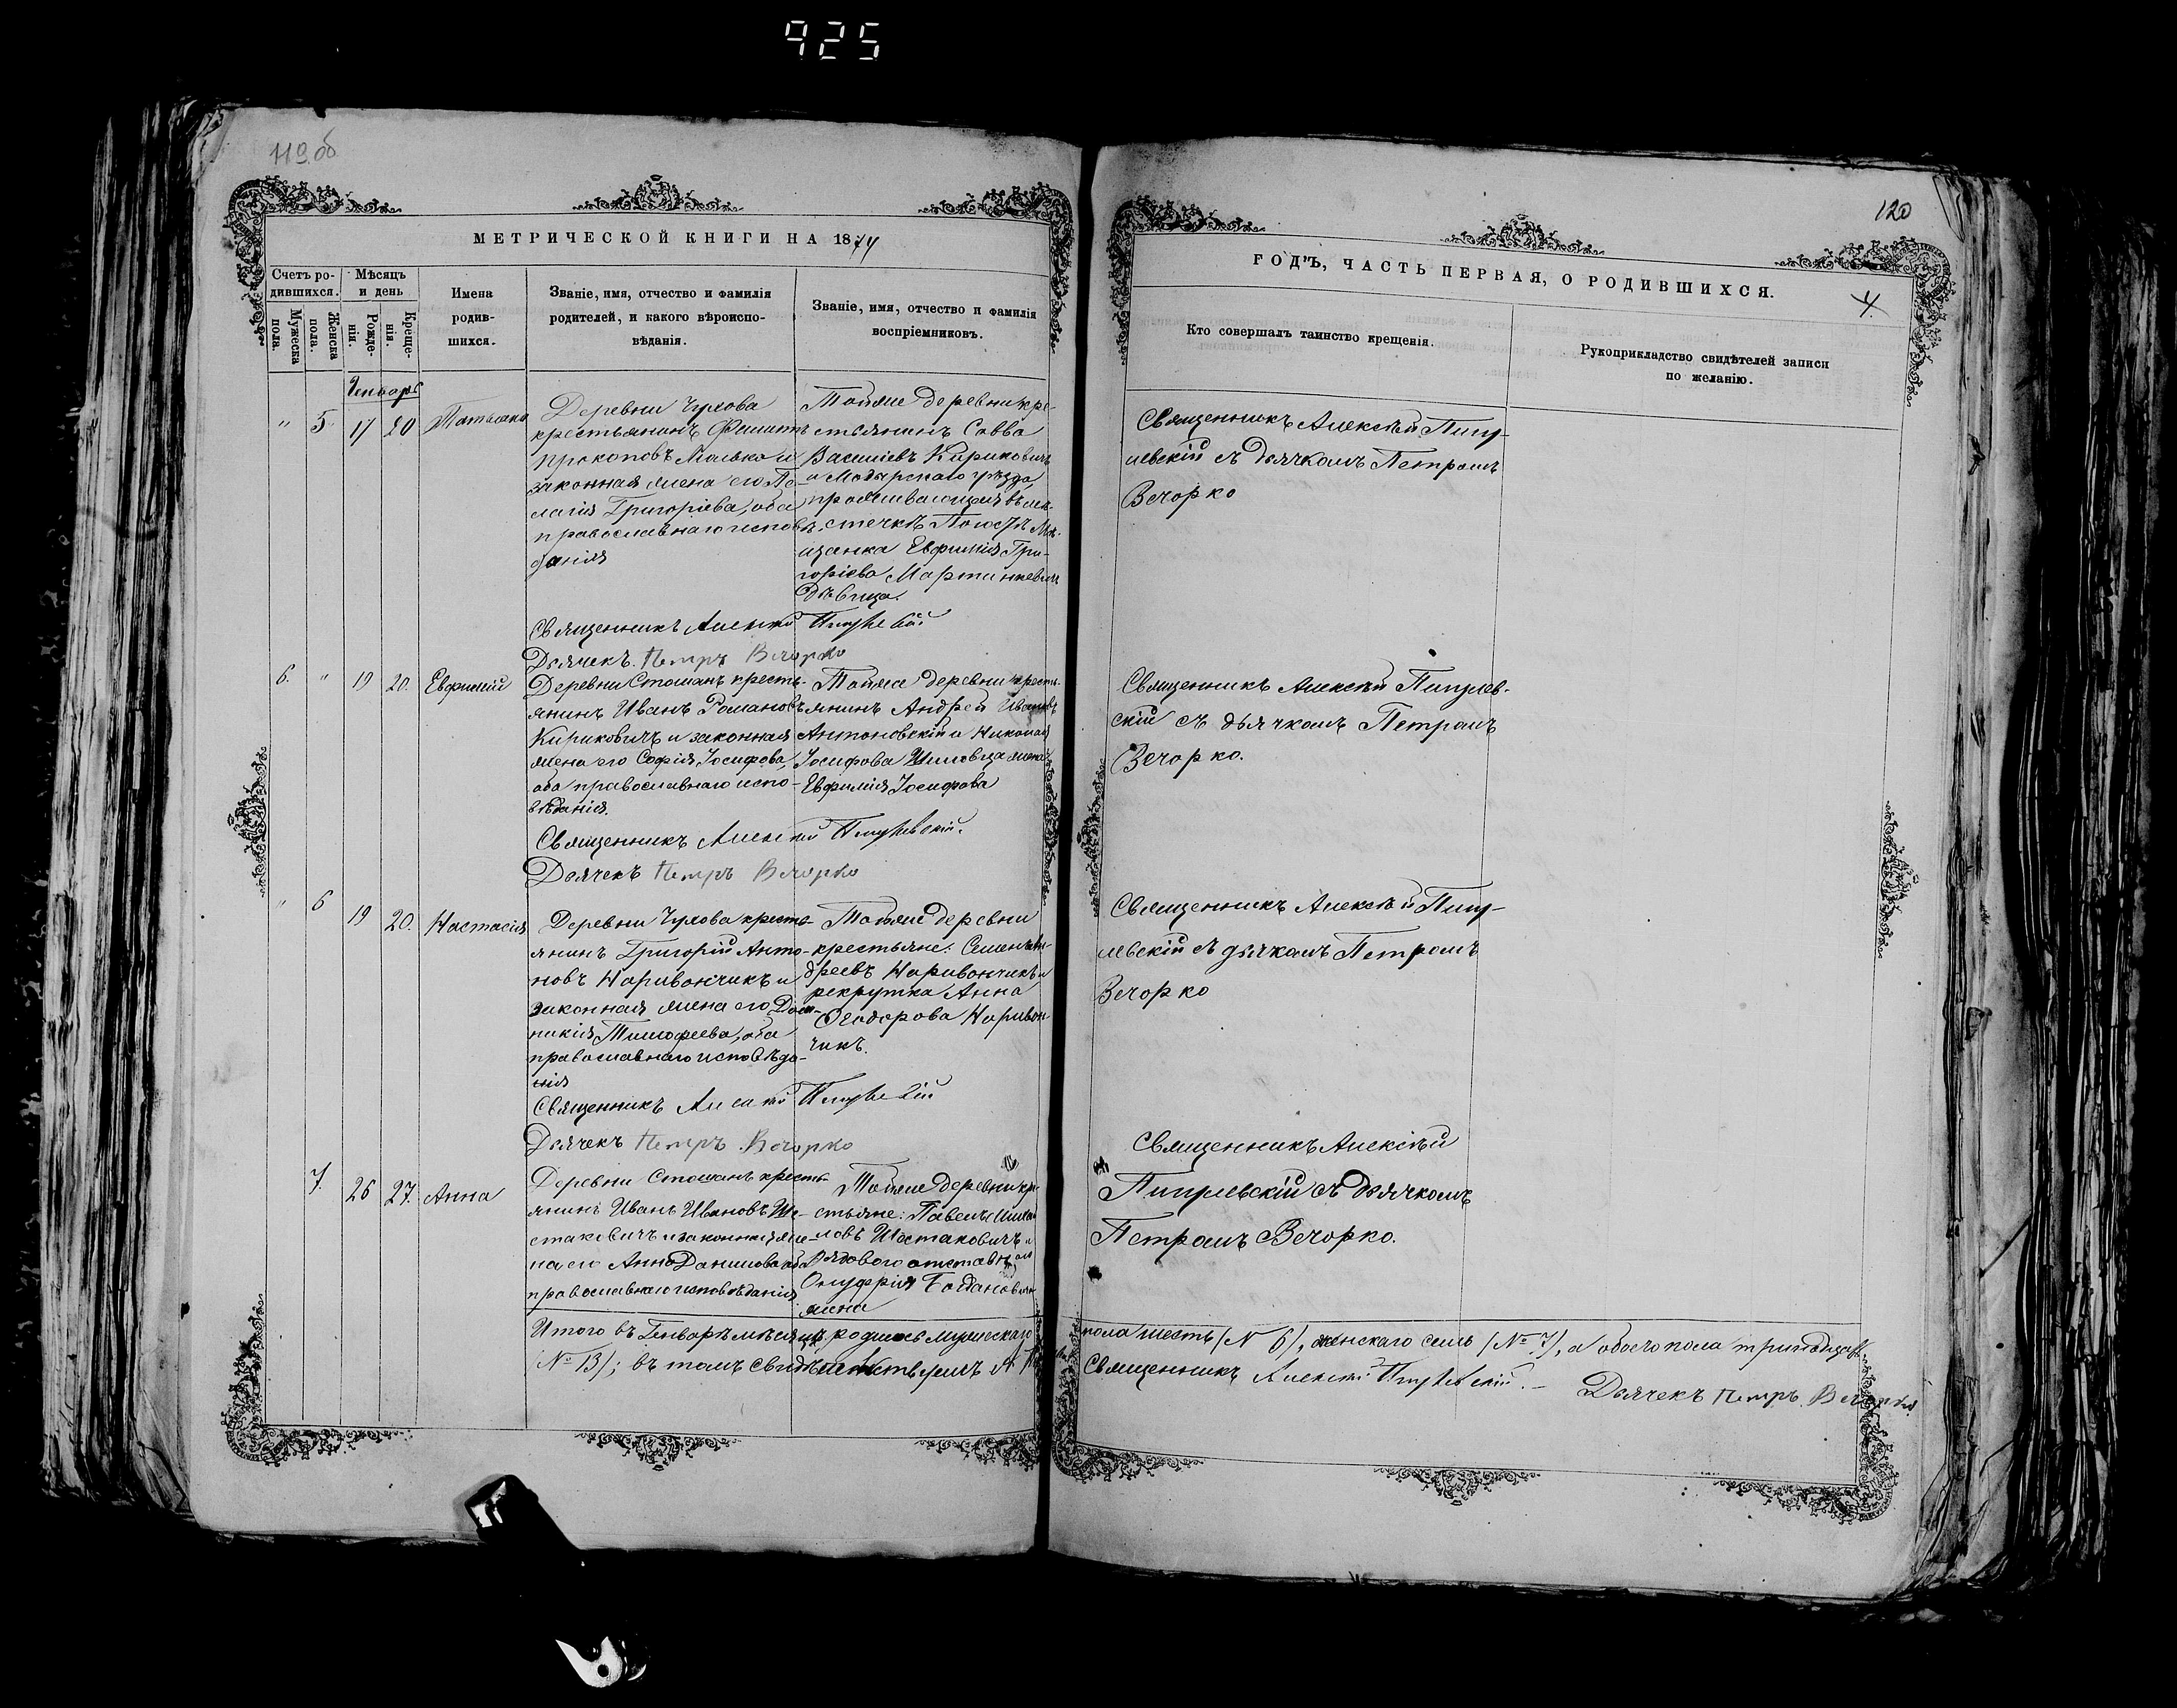 925
119 об
МЕТРИЧЕСКОЙ КНИГИ НА 1874
Счетъ ро-
дившихся.
Мужеска
пола.
Женска
пола.
Мѣсяцъ
и день
Рожде-
нія.
Креще-
нія.
Имена
родив-
шихся.
Званіе, имя, отчество и фамилія
родителей, и какого вѣроиспо-
вѣданія.
Званіе, имя, отчество и фамилія
воспріемниковъ.
Генварь
" 5 17 20 Татіана
Деревни Чухова
крестьянинъ Филиппъ
Прокоповъ Малько и
законная жена его Пе-
лагія Григоріева, оба
православнаго исповѣ-
данія
Тойже деревни кре-
стьянинъ Савва
Василіевъ Кириковичъ
и Мозырскаго уѣзда,
проживающая въ мѣ-
стечкѣ Погостѣ мѣ-
щанка Евфимія Гри-
горіева Мартинкевичъ
дѣвица.
Священникъ Алексѣй
Дьячекъ Петръ Вечорко
6. " 19 20. Евфимій
Деревни Стошанъ кресть-
янинъ Иванъ Романовъ
Кириковичъ и законная
жена его Софія Іосифова,
оба православнаго испо-
вѣданія.
Тойже деревни кресть-
янинъ Андрей Ивановъ
Антоновскій и Николая
Іосифова жена
Евфимія Іосифова
Священникъ Алексѣй
Дьячекъ Петръ Вечорко
" 6 19 20. Настасія
Деревни Чухова кресть-
янинъ Григорій Анто-
новъ Наривончикъ и
законная жена его Дом-
никія Тимофеева, оба
православнаго исповѣда-
нія
Тойже деревни
крестьяне: Семенъ Ан-
дреевъ Наривончикъ и
рекрутка Анна
Ѳеодорова Наривон-
чикъ.
Священникъ Алексѣй
Дьячекъ Петръ Вечорко
7. 26 27. Анна
Деревни Стошанъ кресть-
янинъ Иванъ Ивановъ Ше-
стаковичъ и законная же-
на его Анна Данилова оба
православнаго исповѣданія
Тойже деревни кре-
стьяне: Павелъ
Шостаковичъ и
рядового отставнаго
Онуфрія Богдановича
жена
Итого въ Генварѣ мѣсяцѣ родилось мужескаго
(№ 13); въ томъ свидѣтельствуемъ
120
ГОДЪ, ЧАСТЬ ПЕРВАЯ, О РОДИВШИХСЯ.
4.
Кто совершалъ таинство крещенія.
Рукоприкладство свидѣтелей записи
по желанію.
Священникъ Алексѣй
съ дьячкомъ Петромъ
Вечорко
Священникъ Алексѣй
съ дьячкомъ Петромъ
Вечорко.
Священникъ Алексѣй
съ дьячкомъ Петромъ
Вечорко
Священникъ Алексѣй
съ дьячкомъ
Петромъ Вечорко.
пола шесть (№ 6), женскаго семь (№ 7), а обоего пола тринадцать
Священникъ Алексѣй
Дьячекъ Петръ Вечорко